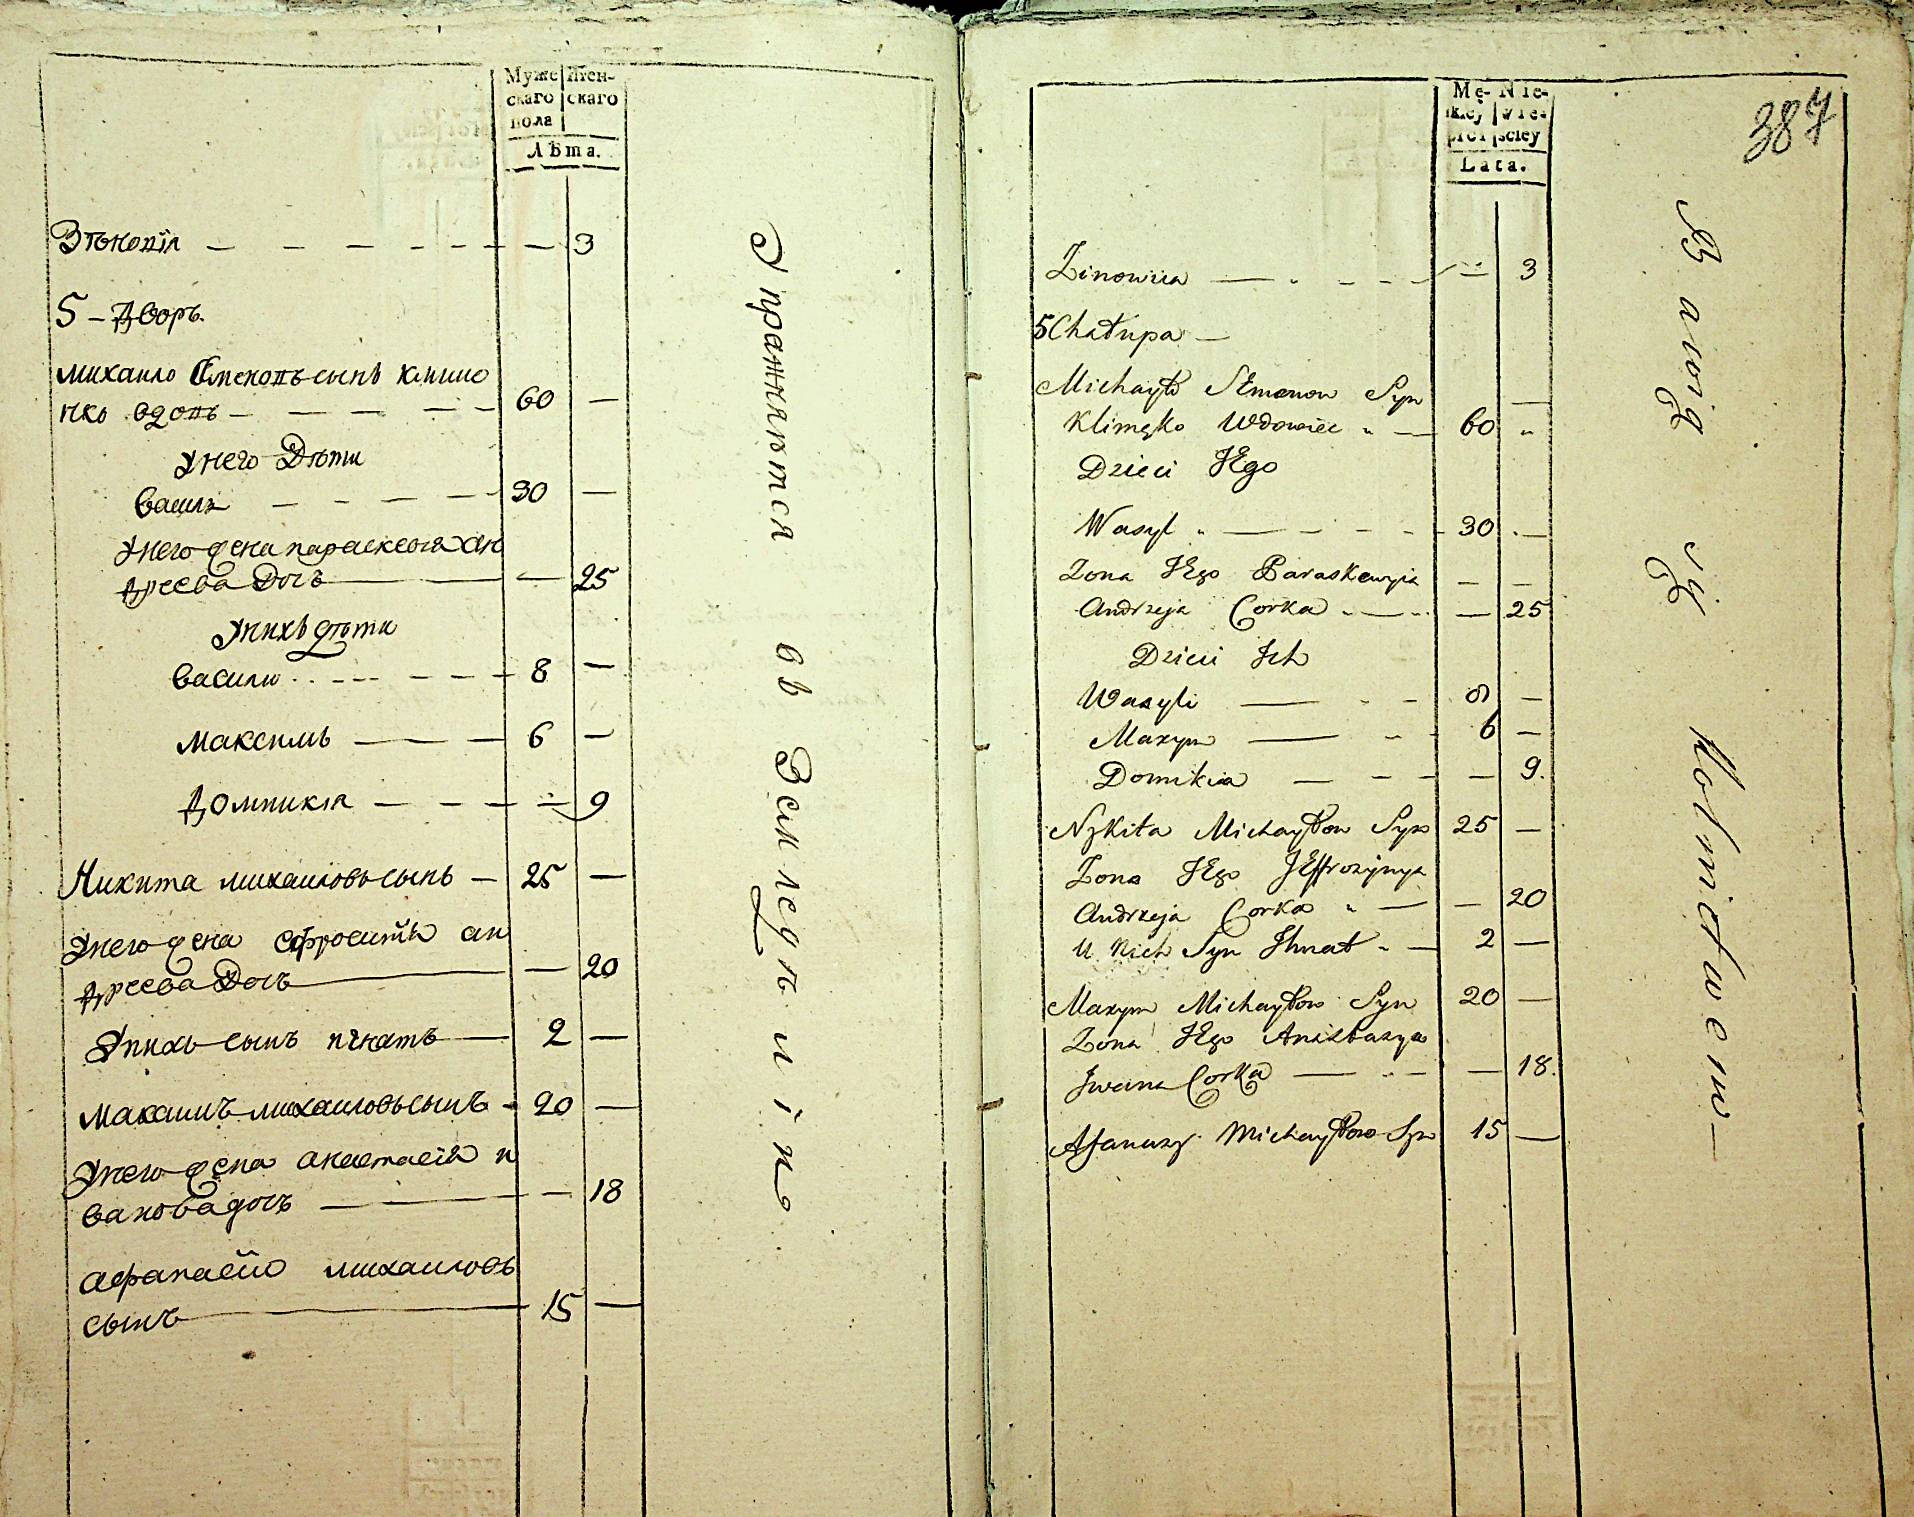 Муже Жен-
скаго скаго
пола
Лѣта.
Зѣновія — 3
5 – Дворъ.
михаило Семеновъ сынъ климе
нко вдовъ — 60 —
Унего Дѣти
василь — 30 —
Унего жена параскевія Ан
дреева Дочь — — 25
Унихъ дѣти
василю — 8 —
максимъ — 6 —
Домникія — — 9
Никита михаиловъ сынъ — 25 —
Унего жена ефросинія ан
дреева Дочь — — 20
Унихъ сынъ игнатъ — 2 —
максимъ михаиловъ сынъ – 20 —
Унего жена анастасія и
ванова дочь — — 18
афанасію михаиловъ
сынъ — 15 —
Упражняются въ Земледѣліи
387
Mę- Nie-
skiey wie-
płci sciey
Lata.
Zinowiia — — 3
5 Chałupa —
Michayło SEmenow Syn —
Klimęko Wdowiec „ — 60 „
Dzieci JEgo
Wasyl „ — 30 —
Zona JEgo Paraskewyia — —
Andrzeja Corka — — 25
Dzieci Ich
Wasyli — 8 —
Maxym — 6 —
Domikia — — 9.
Nykita Michayłow Syn 25 —
Zona JEgo JEffrozynya
Andrzeja Corka „ — — 20
U Nich Syn Ihnat „ — 2 —
Maxym Michayłow Syn 20 —
Zona JEgo Anastazya
Jwana Corka — — 18.
Afanazy Michayłow Syn 15 —
Bawią się Rolnictwem —